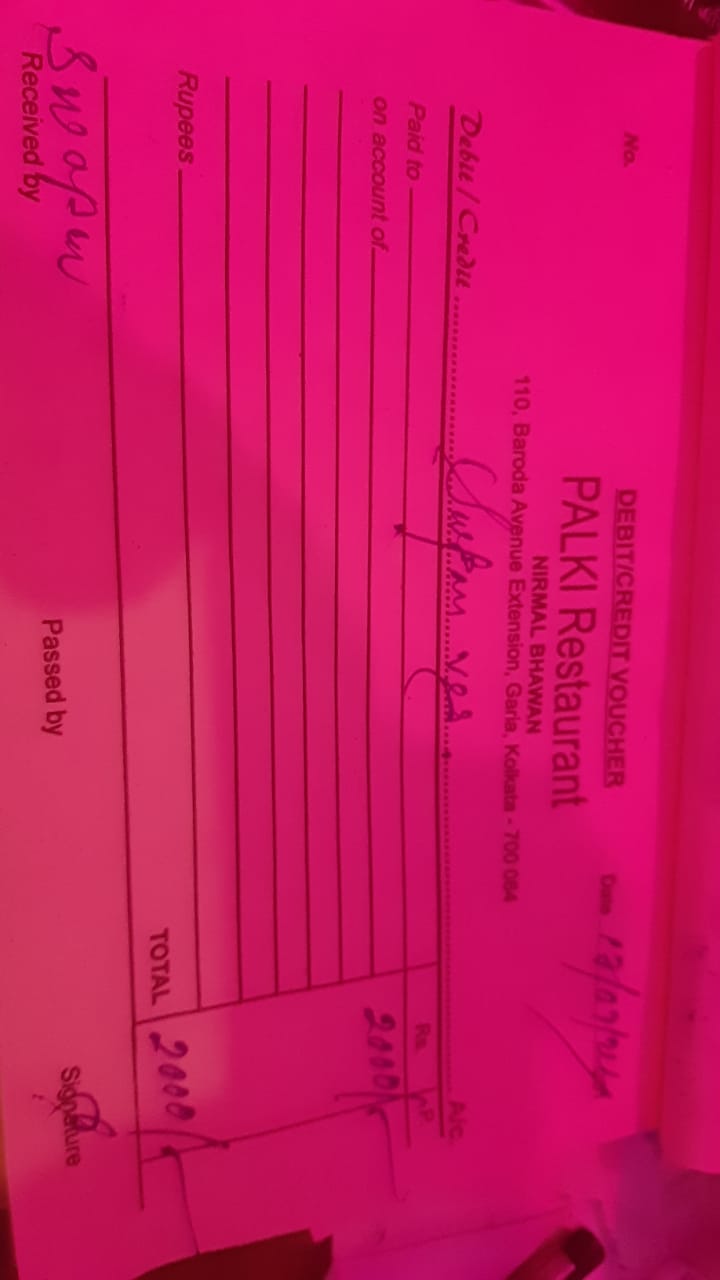 No.
DEBIT/CREDIT VOUCHER
Date
PALKI Restaurant
NIRMAL BHAWAN
110, Baroda Avenue Extension, Garia, Kolkata - 700 084
Debit / Credit A/c.
Paid to Rs. P.
on account of 2000/-
Rupees TOTAL 2000/-
Swapan
Received by Passed by Signature